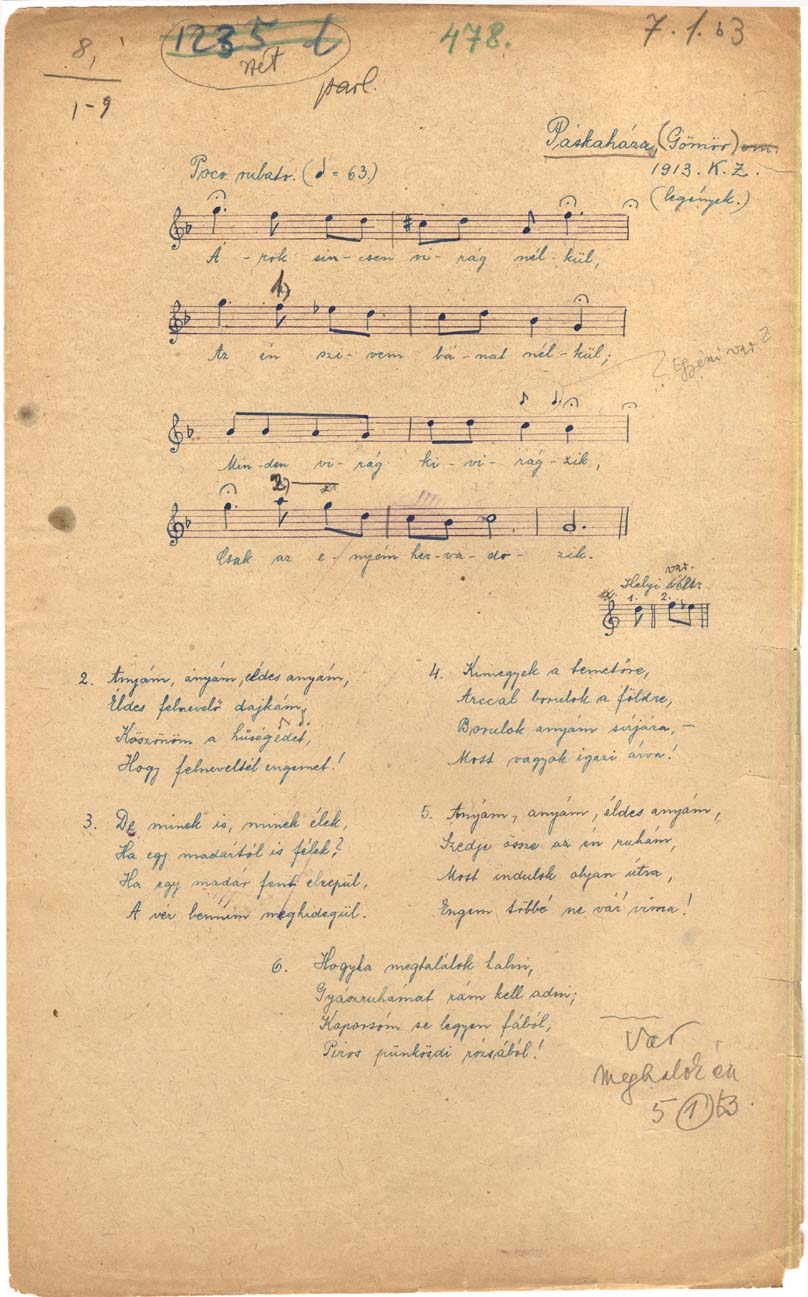 8,
1-9
1235 d
478.
7. 1. b3
parl.
Páskaháza, (Gömör) vm.
1913. K. Z.
(legények.)
Poco rubato. (♩ = 63.)
Á - rok sin-csen vi-rág nél-kül,
1)
Az én szi-vem bá-nat nél-kül;
Egyéni var.
Min-den vi-rág ki-vi-rág-zik,
2)
Csak az e-nyém her-va-do-zik.
Helyi var.
1. 2.
2. Anyám, anyám, éldes anyám,
Éldes felnevelő dajkám,
Köszönöm a hűségedet,
Hogy felneveltél engemet!
3. De minek is, minek élek,
Ha egy madártól is félek?
Ha egy madár fent elrepül,
A vér bennim meghidegül.
4. Kimegyek a temetőre,
Arccal borulok a földre,
Borulok anyám sírjára, –
Most vagyok igazi árva!
5. Anyám, anyám, éldes anyám,
Szedje össze az én ruhám,
Most indulok olyan útra,
Engem többé ne vár' vissza!
6. Hogyha megtalálok halni,
Gyászruhámat rám kell adni;
Koporsóm se legyen fából,
Piros pünkösdi rózsából!
Var
Meghalok én
5 1 b3